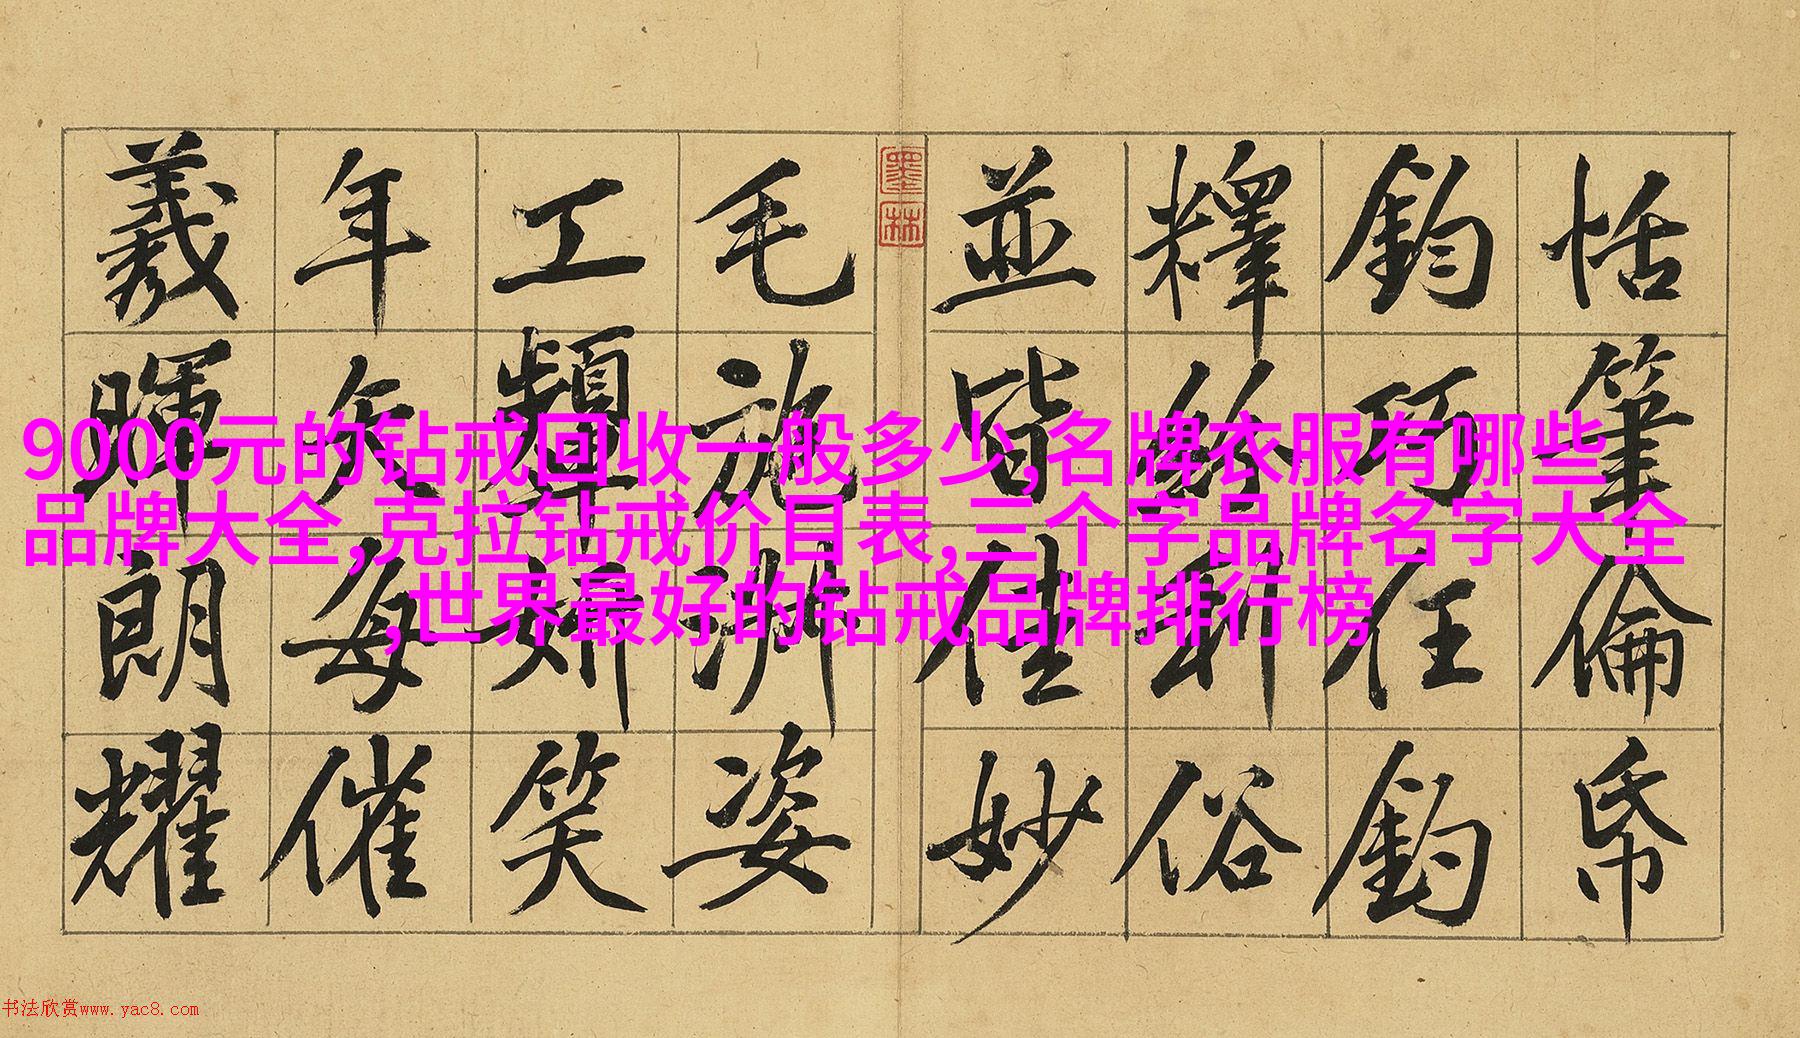 恬筆倫帋
鈞巧任鈞
釋紛利俗
並皆佳妙
墨林
毛施淑姿
工顰妍笑
年矢每催
羲暉朗耀
9000元的钻戒回收一般多少,名牌衣服有哪些
品牌大全,克拉钻戒价目表,三个字品牌名字大全
,世界最好的钻戒品牌排行榜
书法欣赏www.yac8.com